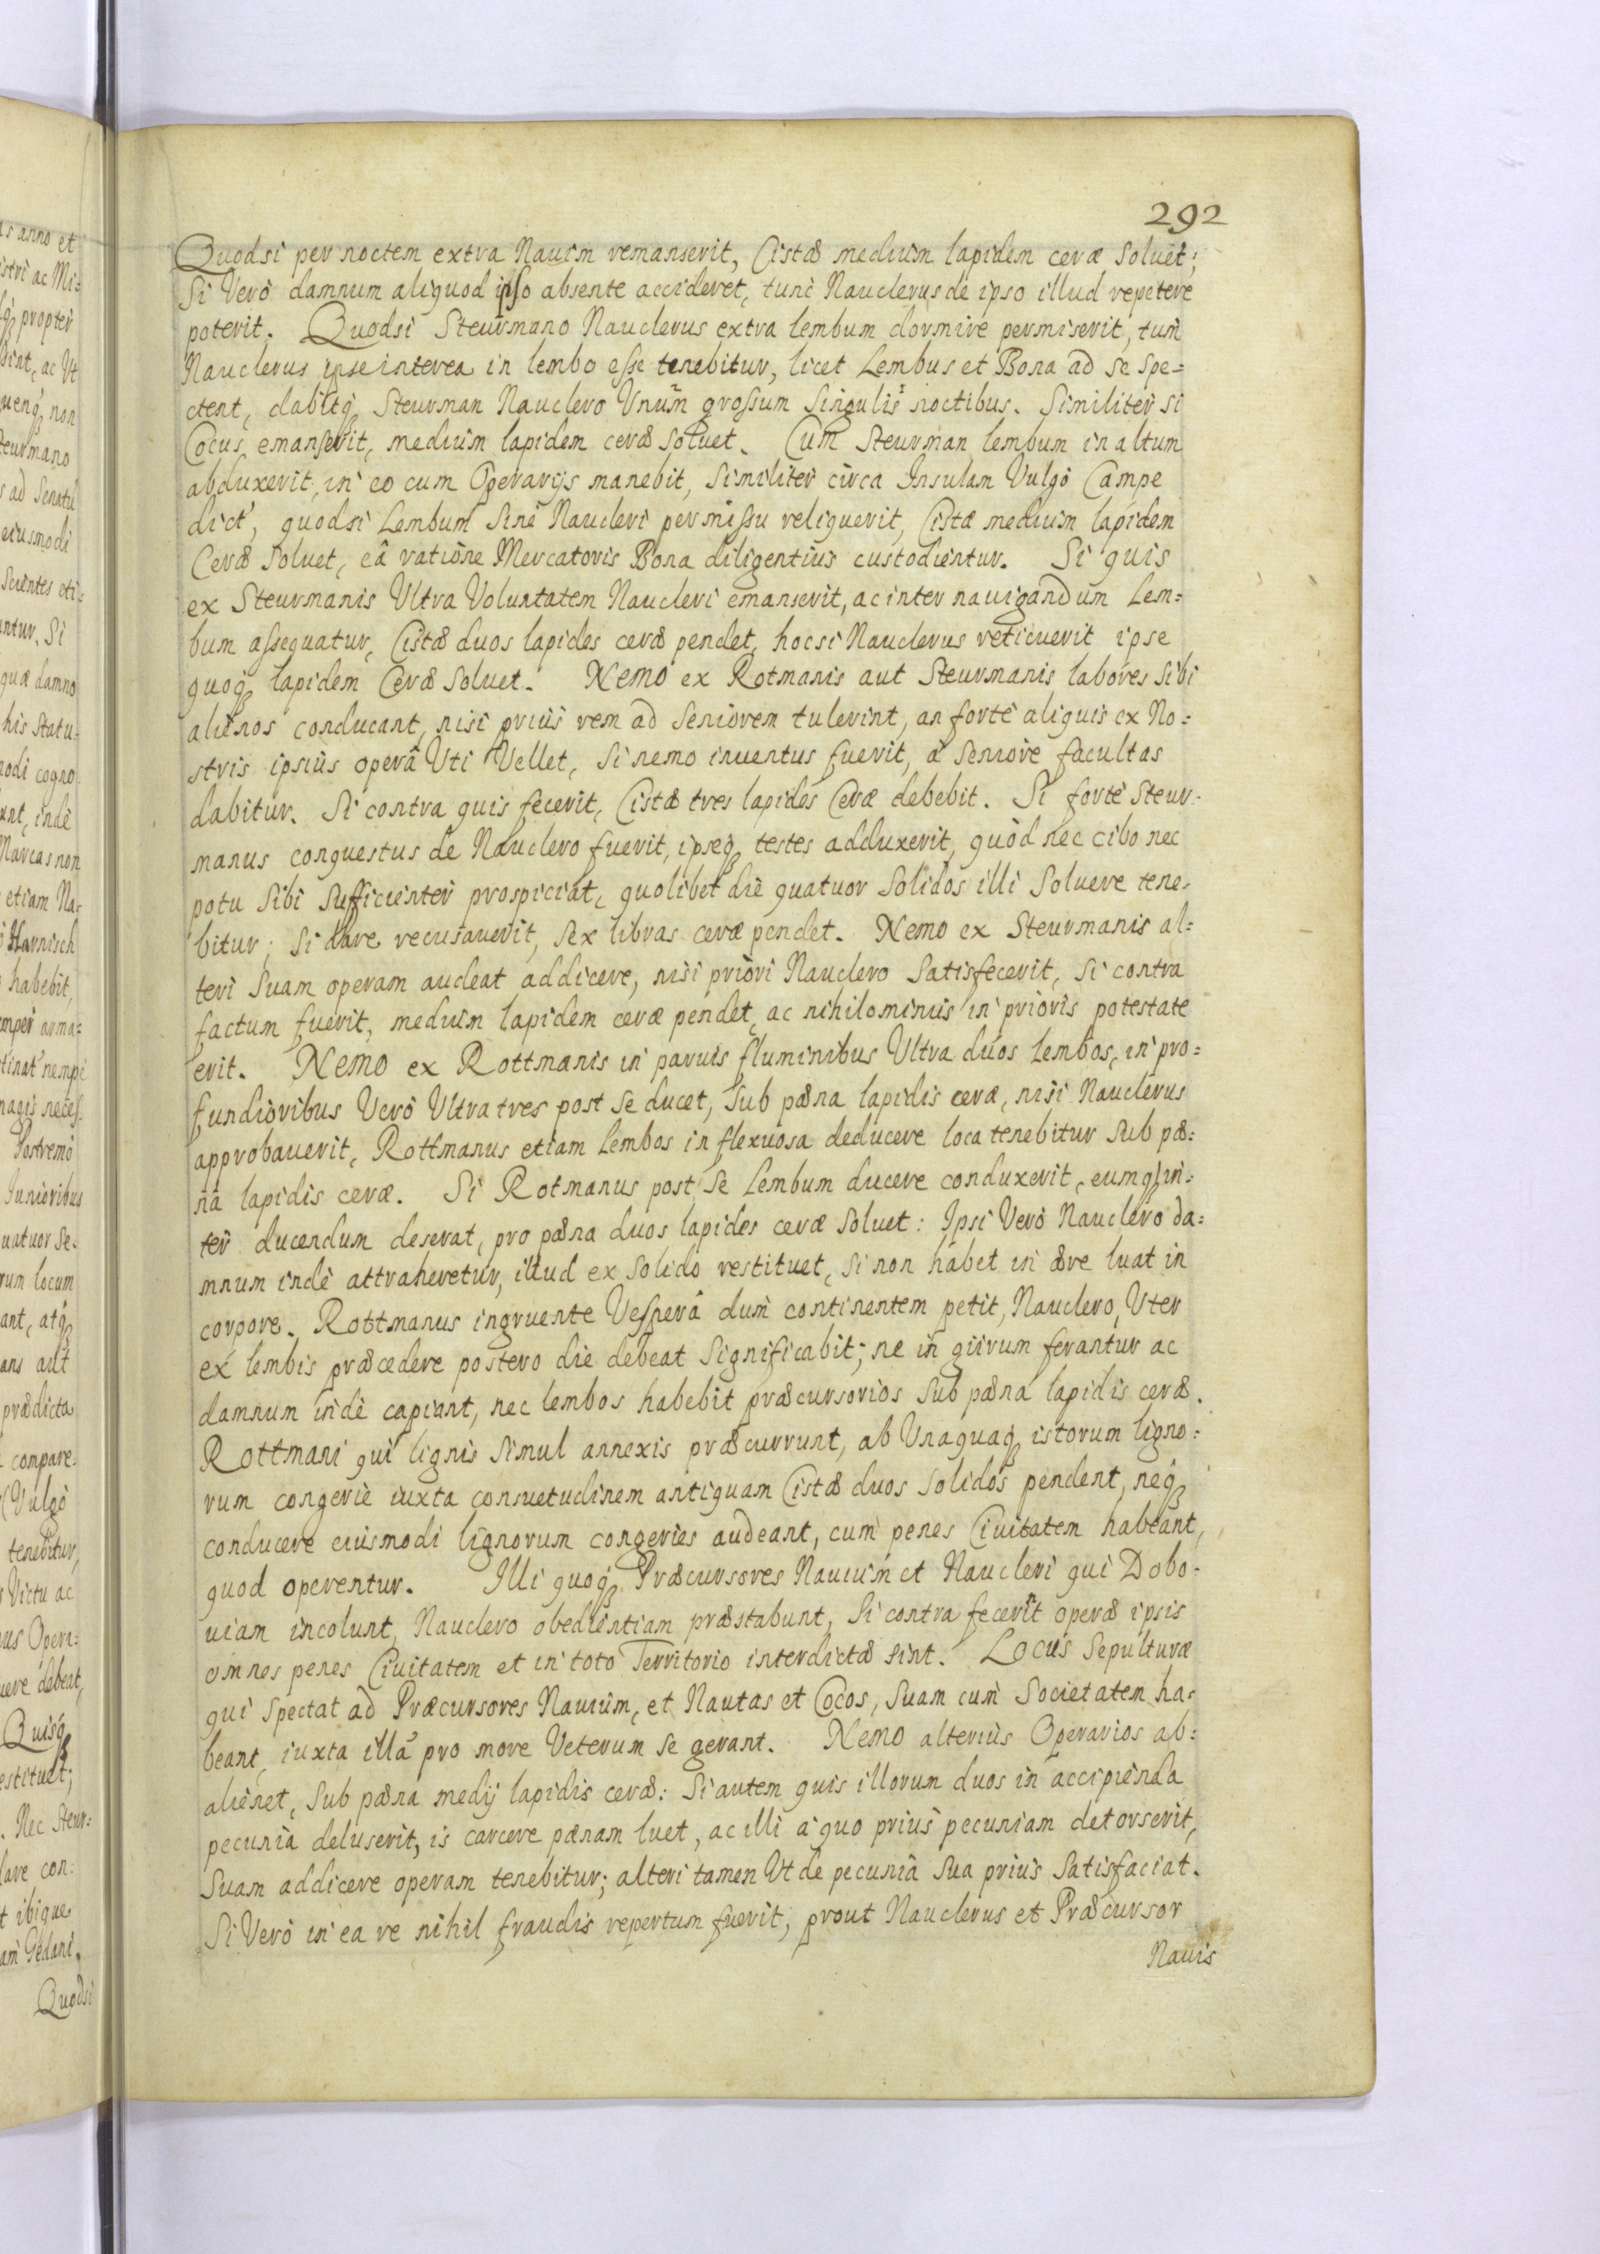 292
Quodsi per noctem extra Nauim remanserit, Cistæ medium lapidem ceræ soluet;
Si Verò damnum aliquod ipso absente accideret, tunc Nauclerus de ipso illud repetere
poterit. Quodsi Steurmano Nauclerus extra lembum dormire permiserit, tum
Nauclerus ipse interea in lembo esse tenebitur, licet Lembus et Bona ad se spe=
ctent, dabitq; Steurman Nauclero Vnum grossum Singulis noctibus. Similiter si
Cocus emanserit, medium lapidem ceræ soluet. Cum Steurman lembum in altum
abduxerit, in eo cum Operarijs manebit, Similiter circa Insulam Vulgò Campe
dict', quodsi Lembum Sine Naucleri permissu reliquerit, Cistæ medium lapidem
Ceræ soluet, eâ ratione Mercatoris Bona diligentius custodientur. Si quis
ex Steurmanis Vltra Voluntatem Naucleri emanserit, ac inter nauigandum Lem=
bum assequatur, Cistæ duos lapides ceræ pendet, hoc si Nauclerus reticuerit ipse
quoq; lapidem Ceræ soluet. Nemo ex Rotmanis aut Steurmanis labores sibi
alienos conducant, nisi prius rem ad Seniorem tulerint, an fortè aliquis ex No=
stris ipsius operâ Vti Vellet, Si nemo inuentus fuerit, à Seniore facultas
dabitur. Si contra quis fecerit, Cistæ tres lapides Ceræ debebit. Si fortè Steur=
manus conquestus de Nauclero fuerit, ipseq; testes adduxerit, quòd nec cibo nec
potu Sibi Sufficienter prospiciat, quolibet die quatuor Solidos illi Soluere tene=
bitur; Si dare recusauerit, sex libras ceræ pendet. Nemo ex Steurmanis al=
teri Suam operam audeat addicere, nisi priori Nauclero Satisfecerit, Si contra
factum fuerit, medium lapidem ceræ pendet, ac nihilominus in prioris potestate
erit. Nemo ex Rottmanis in paruis fluminibus Vltra duos Lembos, in pro=
fundioribus Verò Vltra tres post se ducet, Sub pæna lapidis ceræ, nisi Nauclerus
approbauerit, Rottmanus etiam Lembos in flexuosa deducere loca tenebitur Sub pæ=
na lapidis ceræ. Si Rotmanus post se Lembum ducere conduxerit, eumq; in=
ter ducendum deserat, pro pæna duos lapides ceræ Soluet: Ipsi Verò Nauclero da=
mnum indè attraheretur, illud ex Solido restituet, Si non habet in ære luat in
corpore. Rottmanus ingruente Vesperâ dum continentem petit, Nauclero, Vter
ex lembis præcedere postero die debeat Significabit; ne in giirum ferantur ac
damnum indè capiant, nec lembos habebit præcursorios Sub pæna lapidis ceræ.
Rottmani qui lignis Simul annexis præcurrunt, ab Vnaquaq; istorum ligno=
rum congeriè iuxta consuetudinem antiquam Cistæ duos Solidos pendent, neq;
conducere eiusmodi lignorum congeries audeant, cum penes Ciuitatem habeant,
quod operentur. Illi quoq; Præcursores Nauium et Naucleri qui Dobo=
uiam incolunt, Nauclero obedientiam præstabunt, Si contra fecerit operæ ipsis
omnes penes Ciuitatem et in toto Territorio interdictæ sint. Locus Sepulturæ
qui Spectat ad Præcursores Nauium, et Nautas et Cocos, Suam cum Societatem ha=
beant, iuxta illâ pro more Veterum se gerant. Nemo alterius Operarios ab=
alienet, Sub pæna medij lapidis ceræ: Si autem quis illorum duos in accipienda
pecunià deluserit, is carcere pænam luet, ac illi à quo prius pecuniam detorserit,
Suam addicere operam tenebitur; alteri tamen Vt de pecuniâ Sua prius Satisfaciat.
Si Verò in ea re nihil fraudis repertum fuerit, prout Nauclerus et Præcursor
Nauis